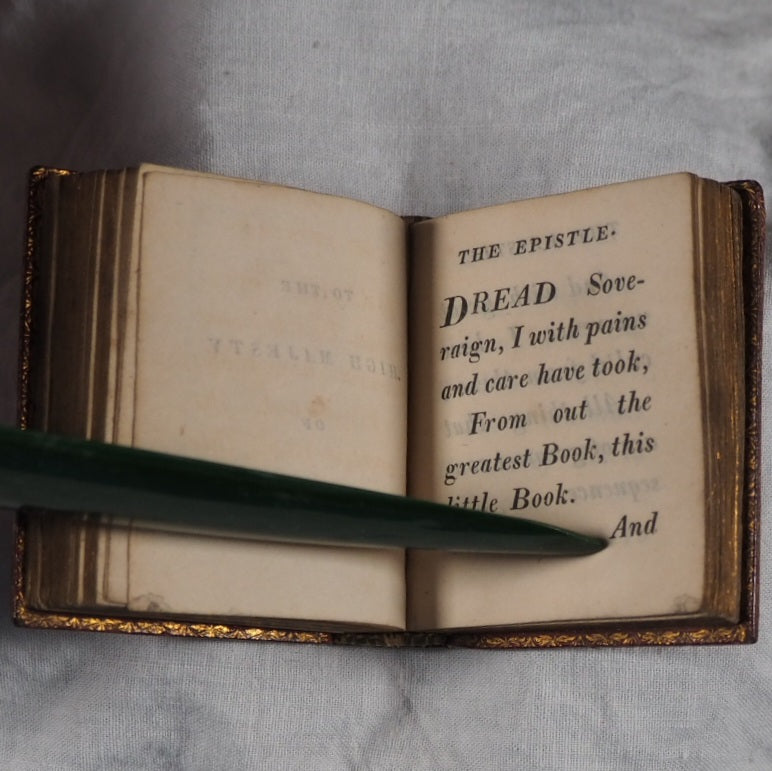 TO THE
HIGH MAJESTY
OF
THE EPISTLE.
DREAD Sove-
raign, I with pains
and care have took,
From out the
greatest Book, this
little Book.
And